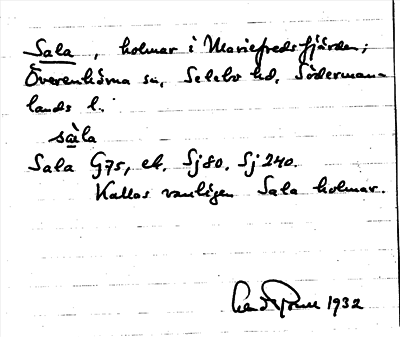 Sala, holmar i Mariefredsfjärden;
Överenhörna sn, Selebo hd, Söderman-
lands l.
sàla
Sala G75, ek. Sj 80. Sj 240.
Kallas vanligen Sala holmar.
1932